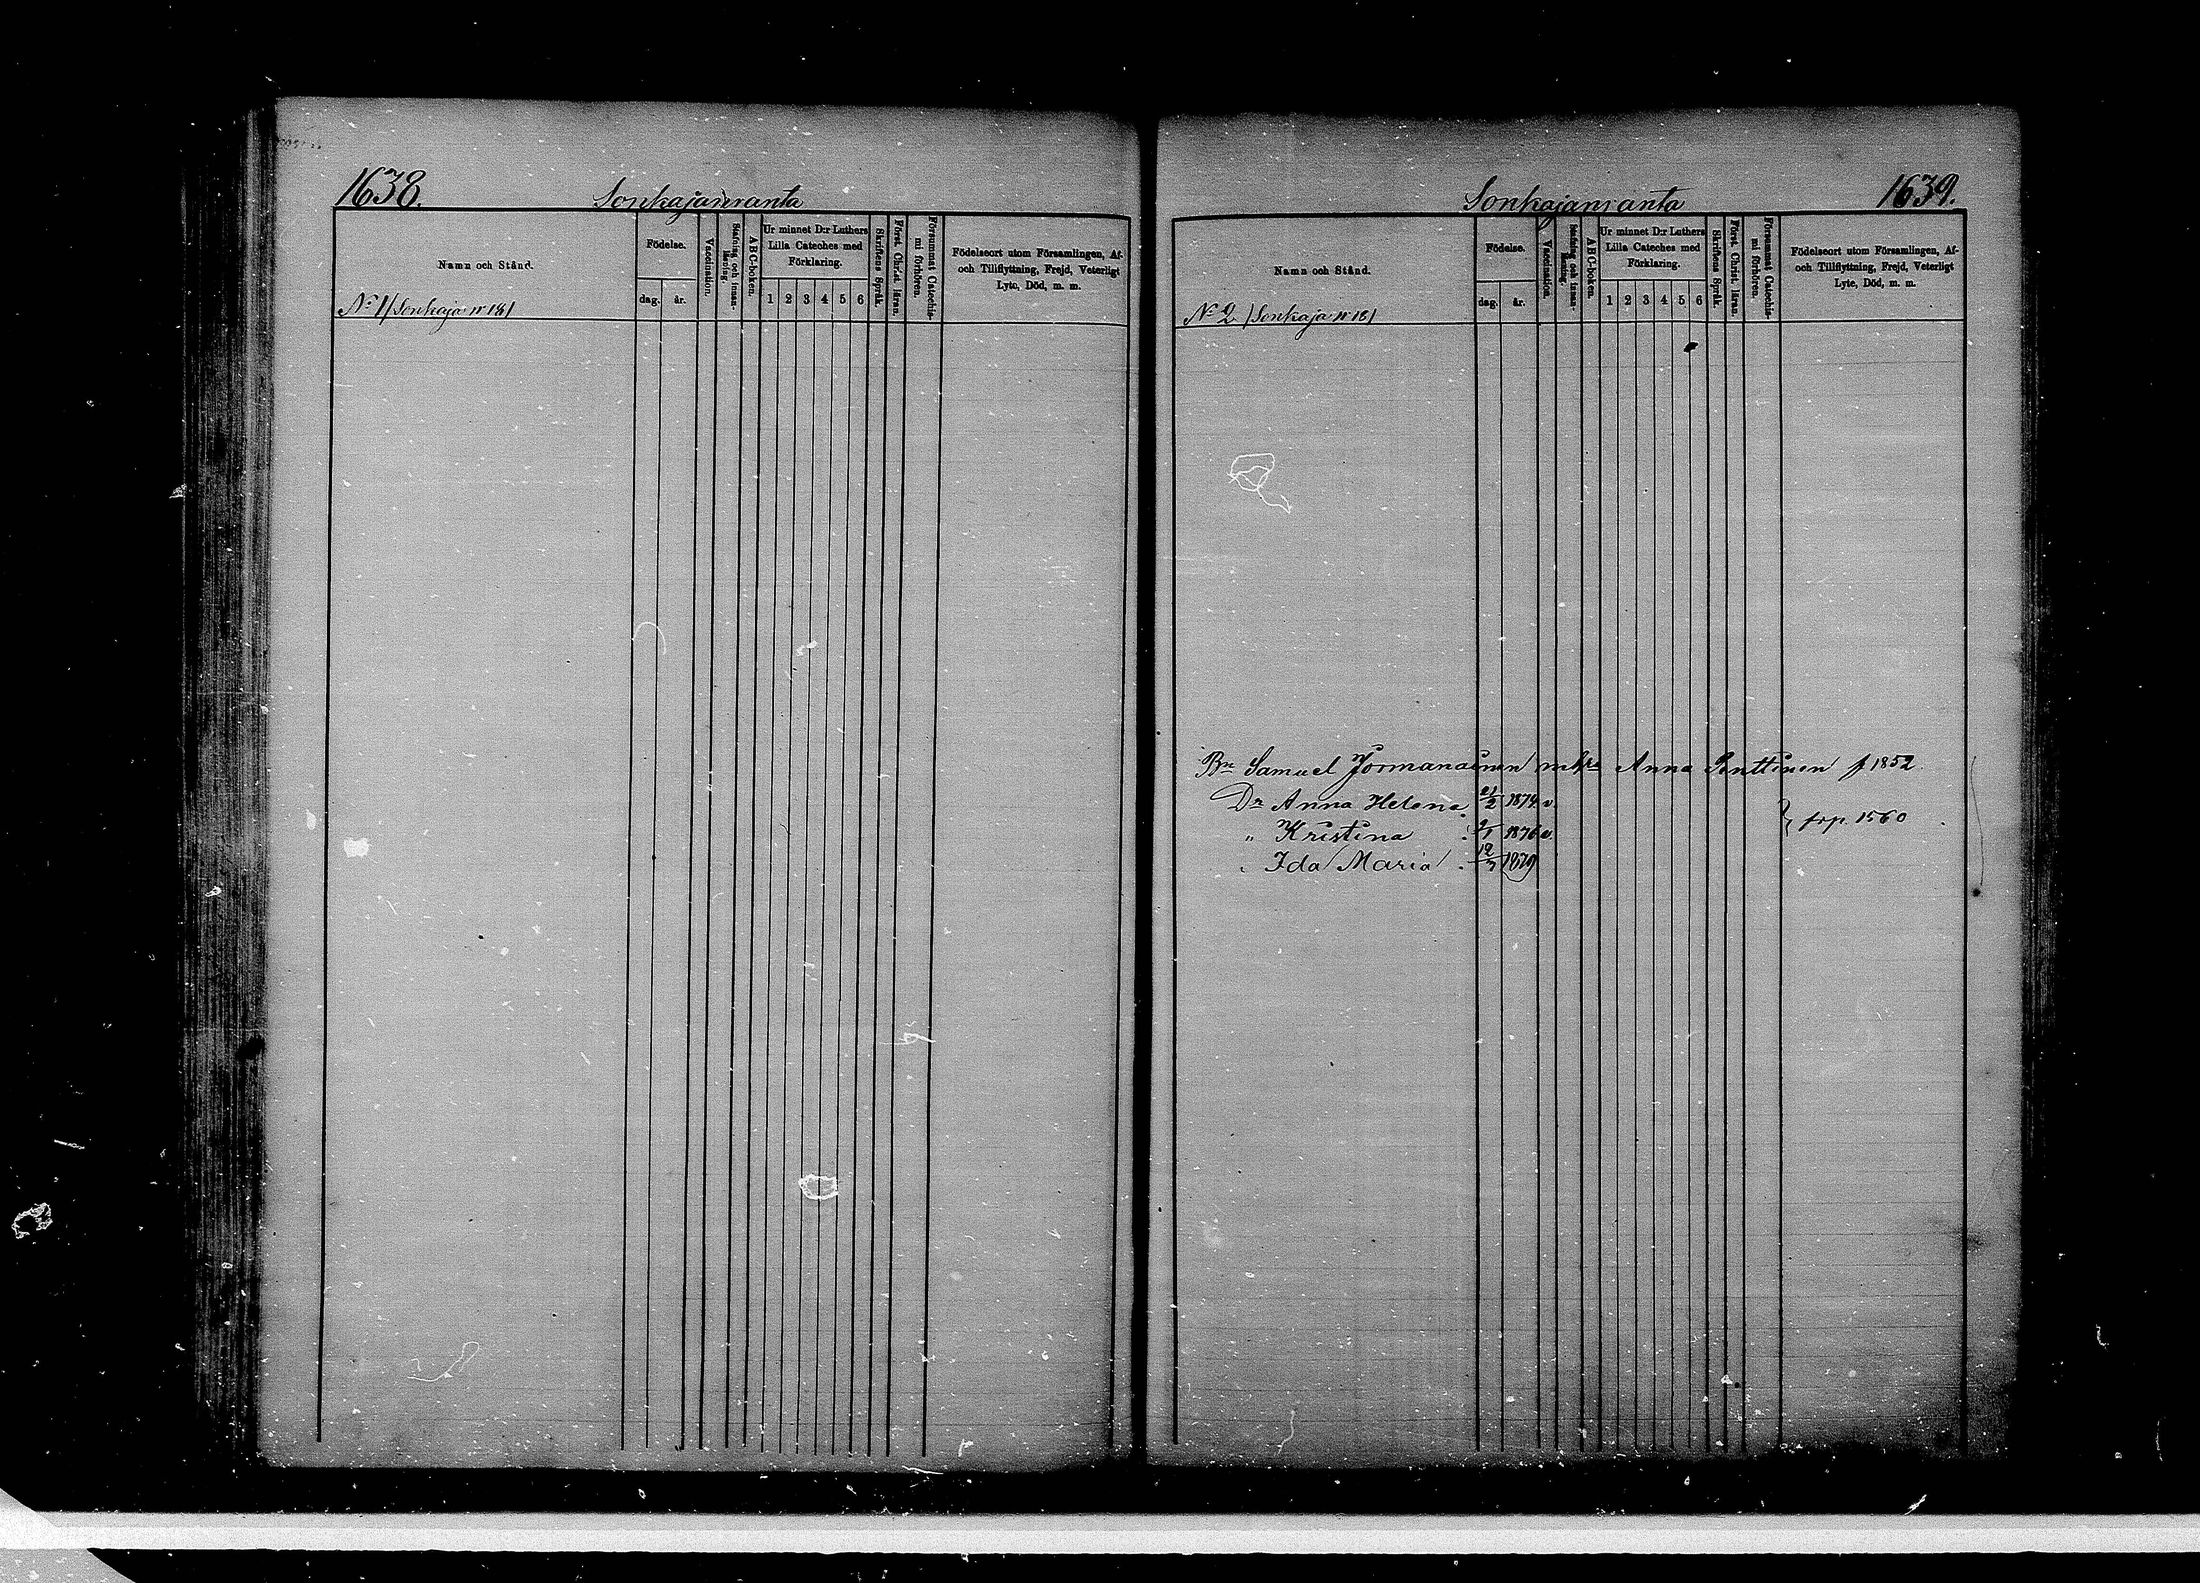 1638.
Sonkajanranta
Namn och Stånd.
Födelse.
dag.
år.
Vaccination.
Stafning och innan-läsning.
A B C-boken.
Ur minnet D:r Luthers Lilla Cateches med Förklaring.
1 2 3 4 5 6
Skriftens Språk.
Först. Christ. läran.
Försummat Catechis-mi förhören.
Födelseort utom Församlingen, Af- och Tillflyttning, Frejd, Veterligt Lyte, Död, m. m.
No 1 /Sonkaja n 18/
Sonkajanranta
1639.
Namn och Stånd.
Födelse.
dag.
år.
Vaccination.
Stafning och innan-läsning.
A B C-boken.
Ur minnet D:r Luthers Lilla Cateches med Förklaring.
1 2 3 4 5 6
Skriftens Språk.
Först. Christ. läran.
Försummat Catechis-mi förhören.
Födelseort utom Församlingen, Af- och Tillflyttning, Frejd, Veterligt Lyte, Död, m. m.
No 2 /Sonkaja n 18/
Bn Samuel Jormanainen Anna Penttinen f 1852.
Dr Anna Helena 21/2 1874 v.
" Kristina 1876 v.
" Ida Maria 12/7 1879
frp. 1560